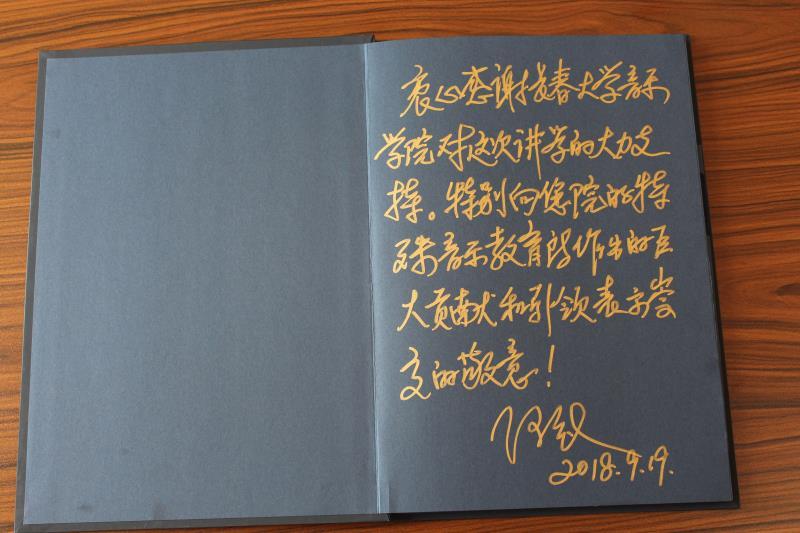 衷心感谢长春大学音乐
学院对这次讲学的大力支
持。特别向您院的特
殊音乐教育所作出的巨
大贡献和引领表示崇
高的敬意！
2018.9.19.